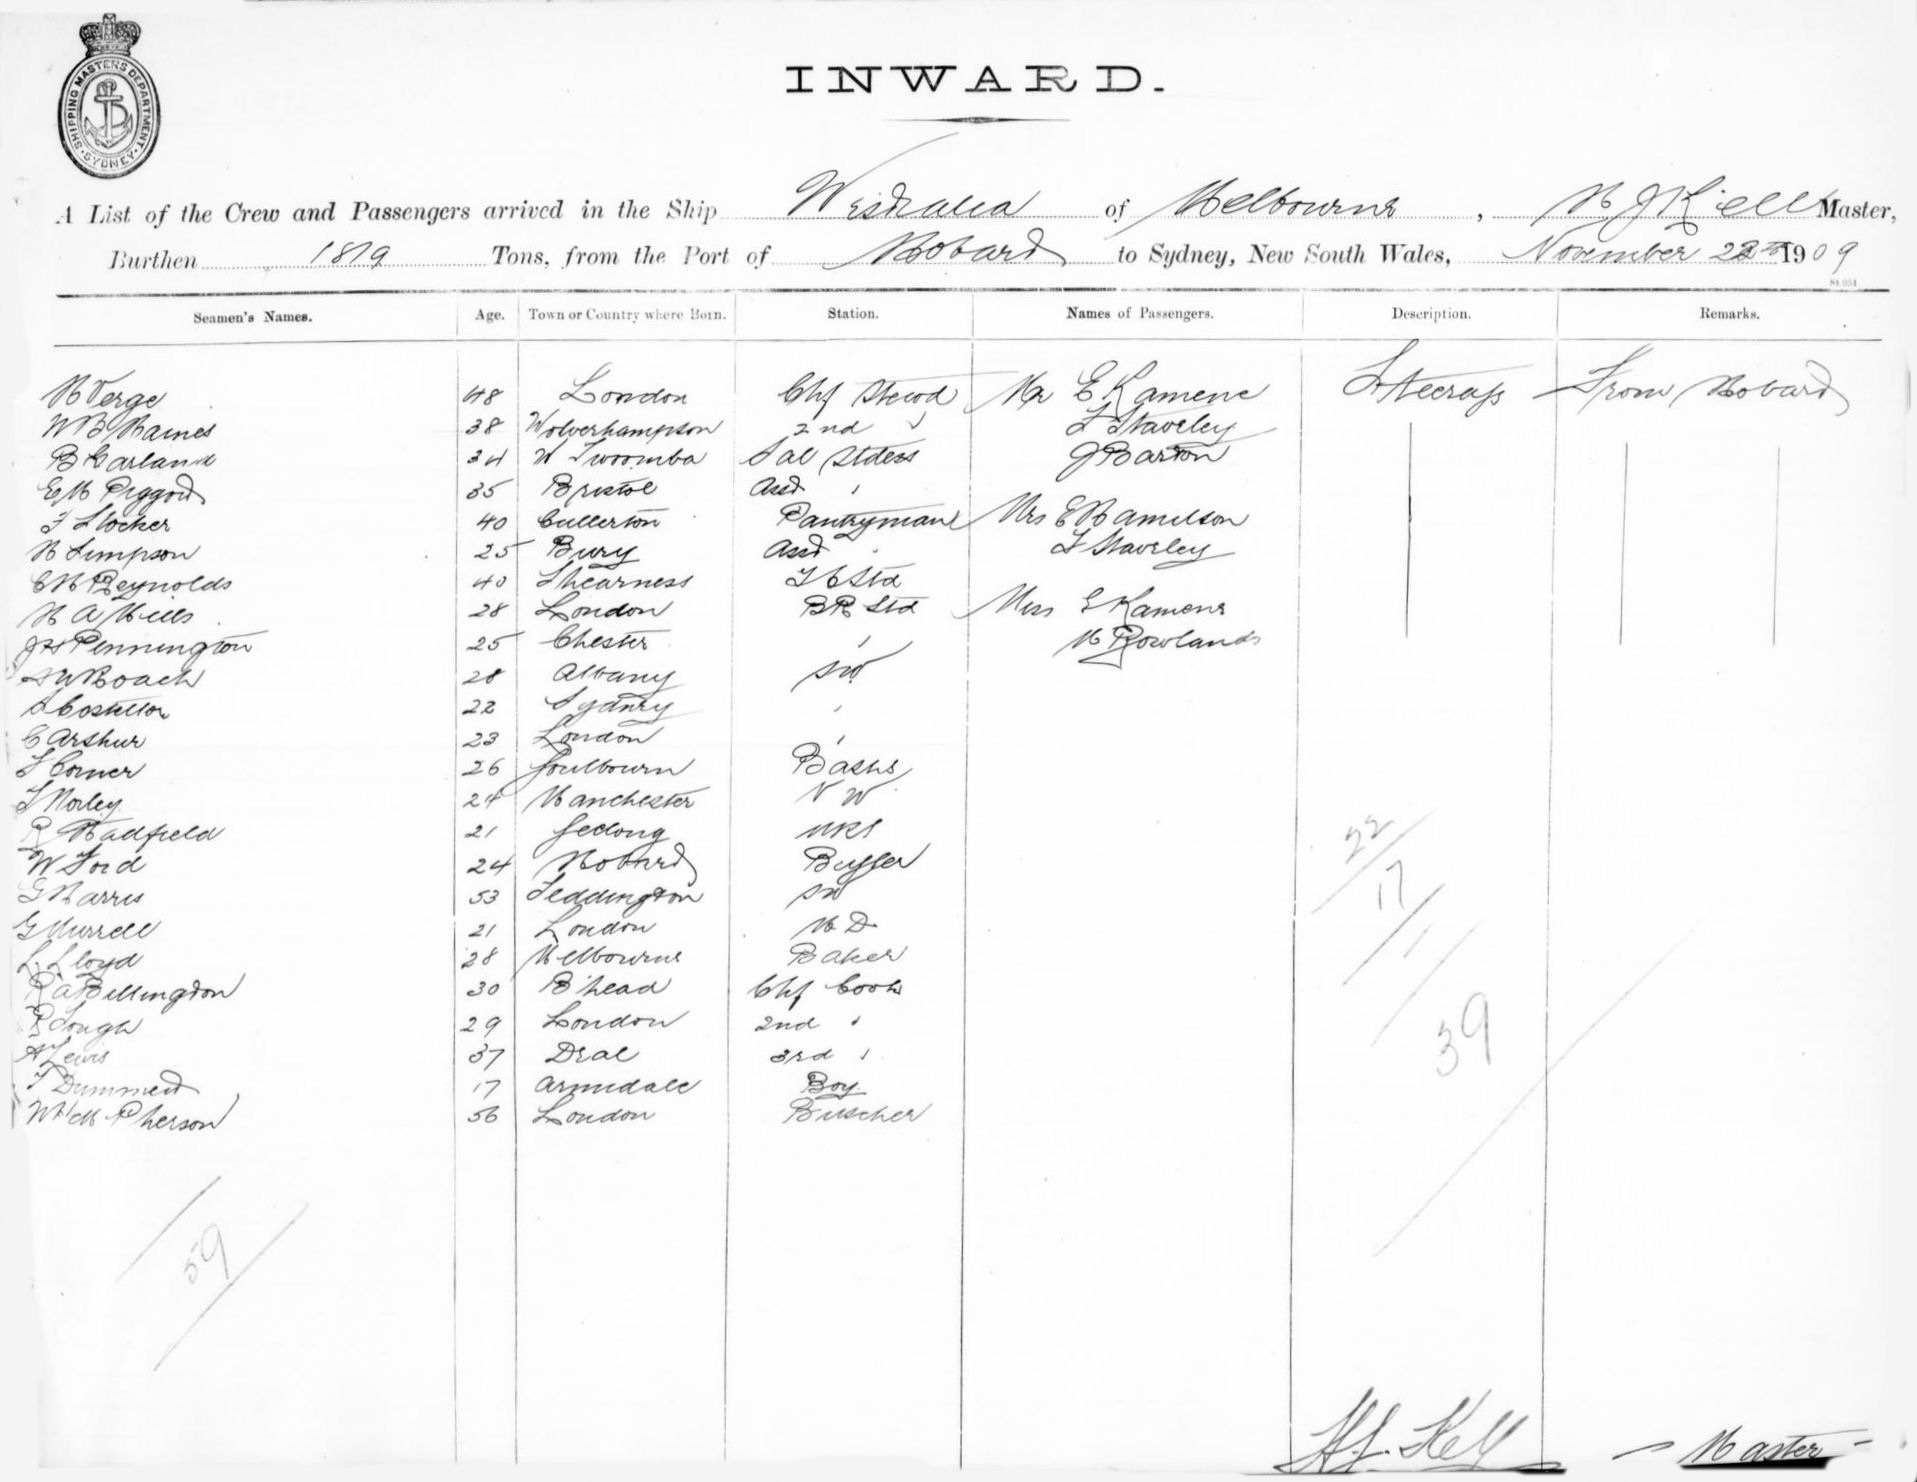 SHIPPING MASTERS DEPARTMENT
SYDNEY
INWARD.
A List of the Crew and Passengers arrived in the Ship Westralia of Melbourne, H J Kell Master,
Burthen 1819 Tons, from the Port of Hobart to Sydney, New South Wales, November 1909
Seamen's Names. Age. Town or Country where Born. Station. Names of Passengers. Description. Remarks.
H Verge 48 London Chf Stewd Mr E Kamene Steerage From Hobart
W B Haines 38 Wolverhampton 2nd " F Staveley
B Garland 34 Sal Stdess J Barton
E H Piggott 35 Bristol Asst "
F Stocker 40 Cullerton Pantryman Mrs E Hamilton
H Simpson 25 Bury Asst " F Staveley
C H Reynolds 40 Shearness Std
H A Mills 28 London BR Std Miss E Kamene
Pennington 25 Chester " M Rowlands
Roach 28 Albany SW
Costello 22 Sydney "
C Arthur 23 London "
F Corner 26 Goulbourn Baths
T Morley 24 Manchester N W
R Hadfield 21 Geelong
W Ford 24 Hobart Buffer
G Harris 53 Teddington SW
G Murrell 21 London
L Lloyd 28 Melbourne Baker
R A Billington 30 B'head Chf Cook
R Gough 29 London 2nd "
A Lewis 37 Deal 3rd "
T Dummett 17 Armidale Boy
W McPherson 56 London Butcher
22
17
1
39
59
H.J. Kell Master